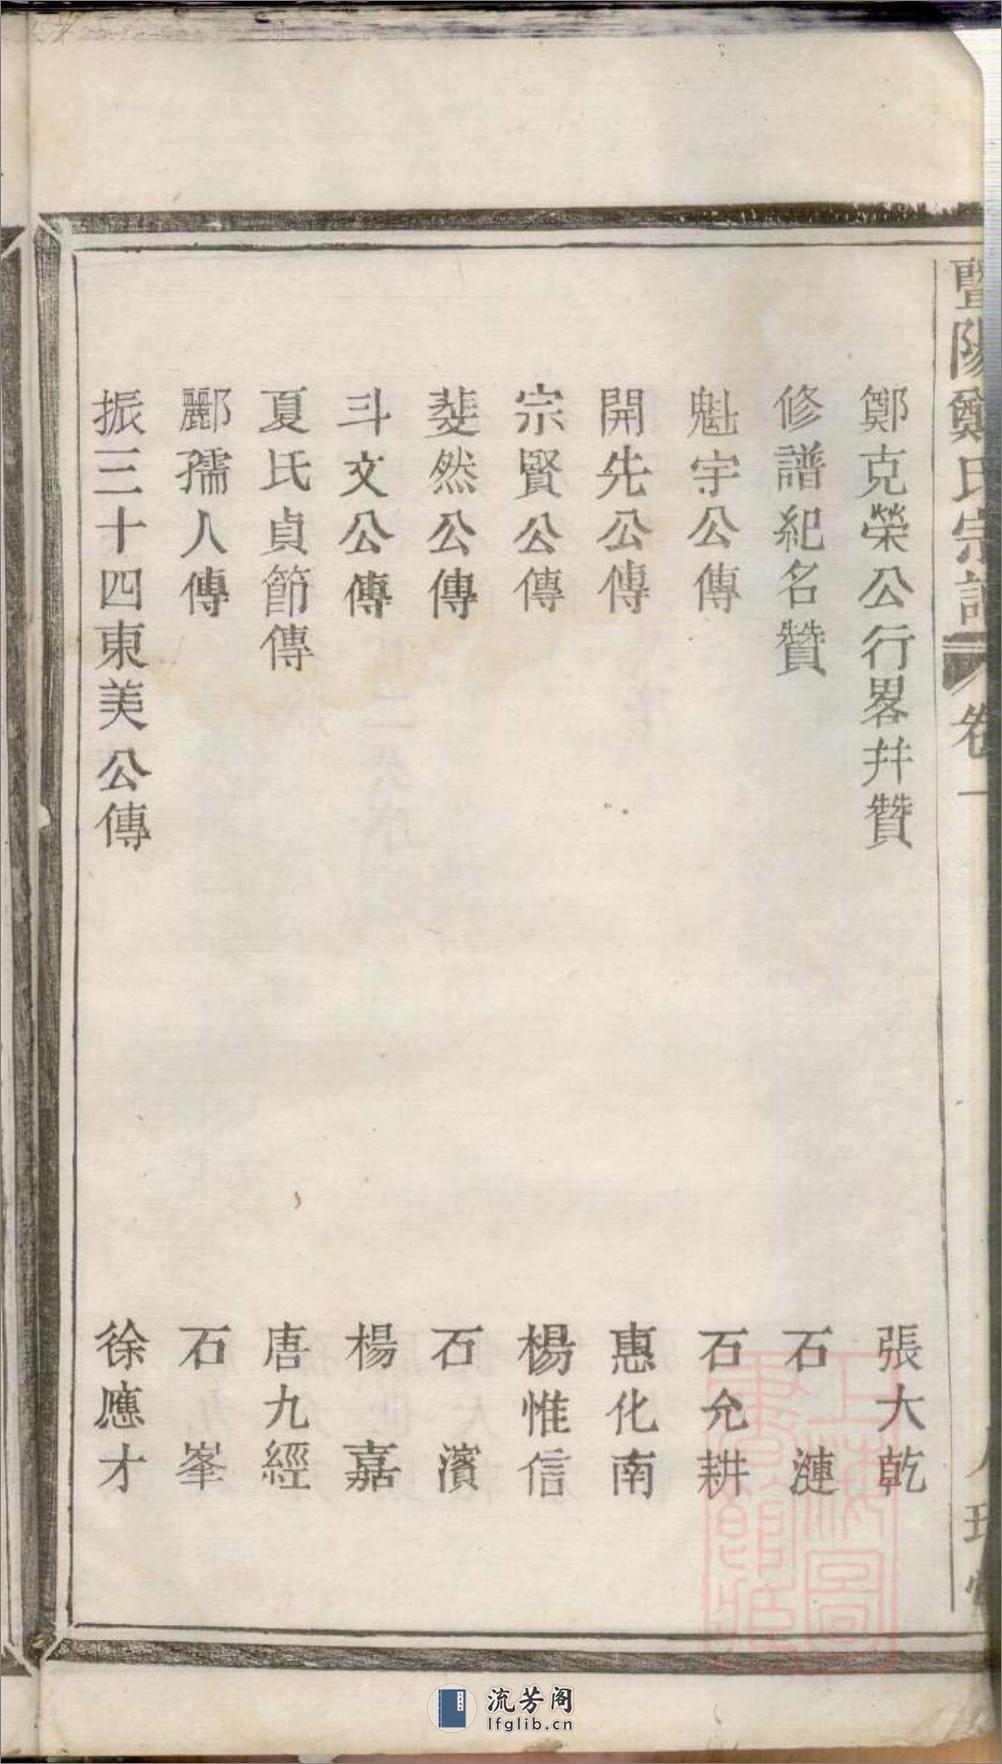 暨陽鄭氏宗譜 卷一
鄭克榮公行畧并贊 張大乾
修譜紀名贊 石漣
魁宇公傳 石允耕
開先公傳 惠化南
宗賢公傳 楊惟信
斐然公傳 石濱
斗文公傳 楊嘉
夏氏貞節傳 唐九經
酈孺人傳 石峯
振三十四東美公傳 徐應才
上海圖書館藏
流芳阁
lfglib.cn